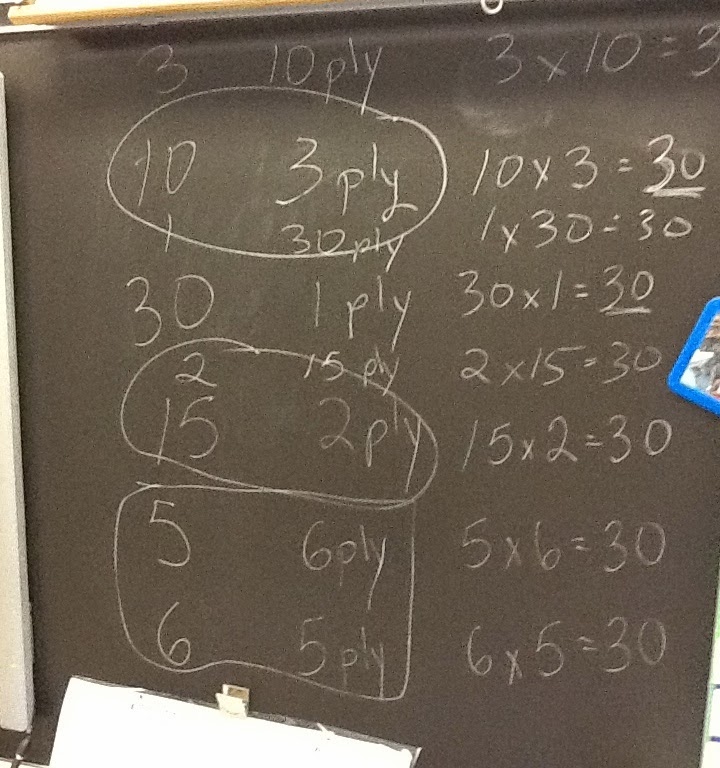 3 10 ply 3 x 10 = 3
10 3 ply 10 x 3 = 30
1 30 ply 1 x 30 = 30
30 1 ply 30 x 1 = 30
2 15 ply 2 x 15 = 30
15 2 ply 15 x 2 = 30
5 6 ply 5 x 6 = 30
6 5 ply 6 x 5 = 30